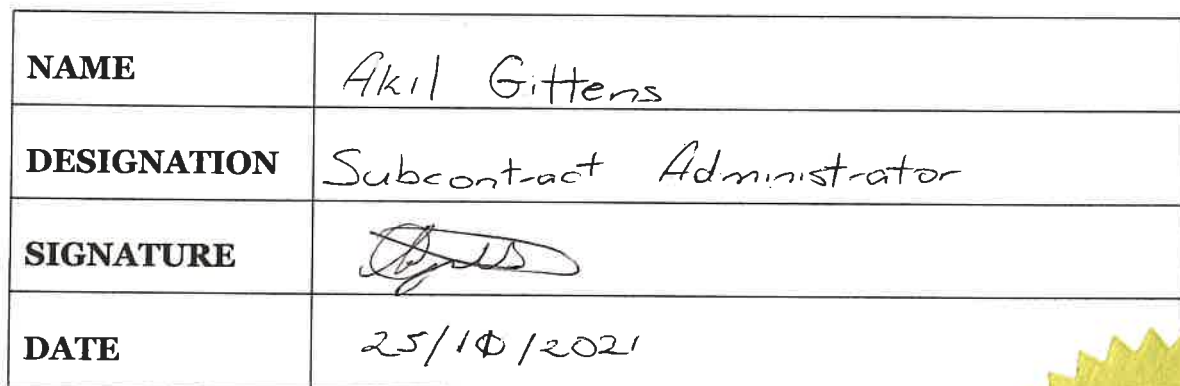 NAME Akil Gittens
DESIGNATION Subcontract Administrator
SIGNATURE
DATE 25/10/2021